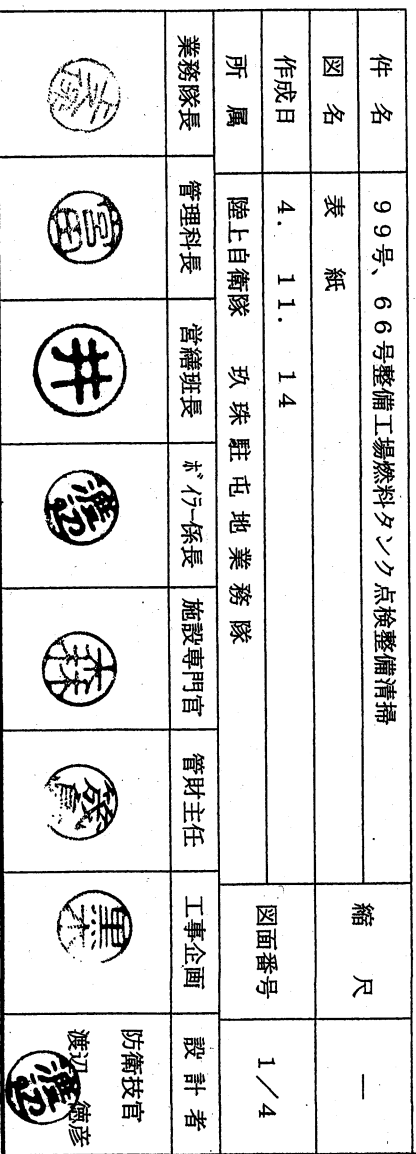 件名 99号、66号整備工場燃料タンク点検整備清掃
図名 表紙 縮尺 ―
作成日 4. 11. 14 図面番号 1/4
所属 陸上自衛隊 玖珠駐屯地業務隊
業務隊長 管理科長 営繕班長 ボイラー係長 施設専門官 管財主任 工事企画 設計者
井 渡辺 黒木 防衛技官
渡辺 徳彦
渡辺